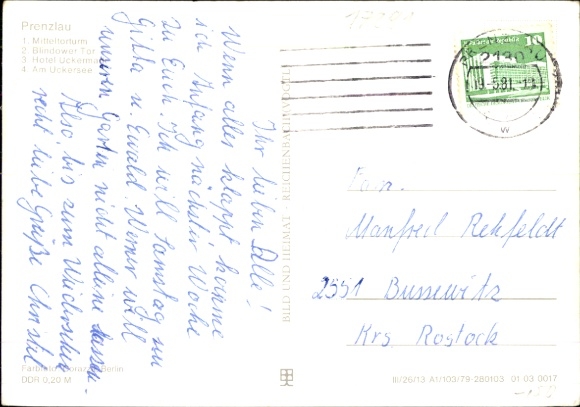 Prenzlau
1. Mitteltorturm
2. Blindower Tor
3. Hotel Uckermark
4. Am Uckersee
Ihr lieben Alle!
Wenn alles klappt, komme
ich Anfang nächster Woche
zu Euch. Ich will Samstag zu
Gitta u. Ewald. Werner will
unseren Garten nicht alleine lassen.
Also, bis zum Wiedersehen
recht liebe Grüße Christel
BILD UND HEIMAT · REICHENBACH (VOGTL)
10
2130
19.5.81.-13
w
Fam.
Manfred Rehfeldt
2551 Bussewitz
Krs. Rostock
Berlin
DDR 0,20 M
III/26/13 A1/103/79-280103 01 03 0017